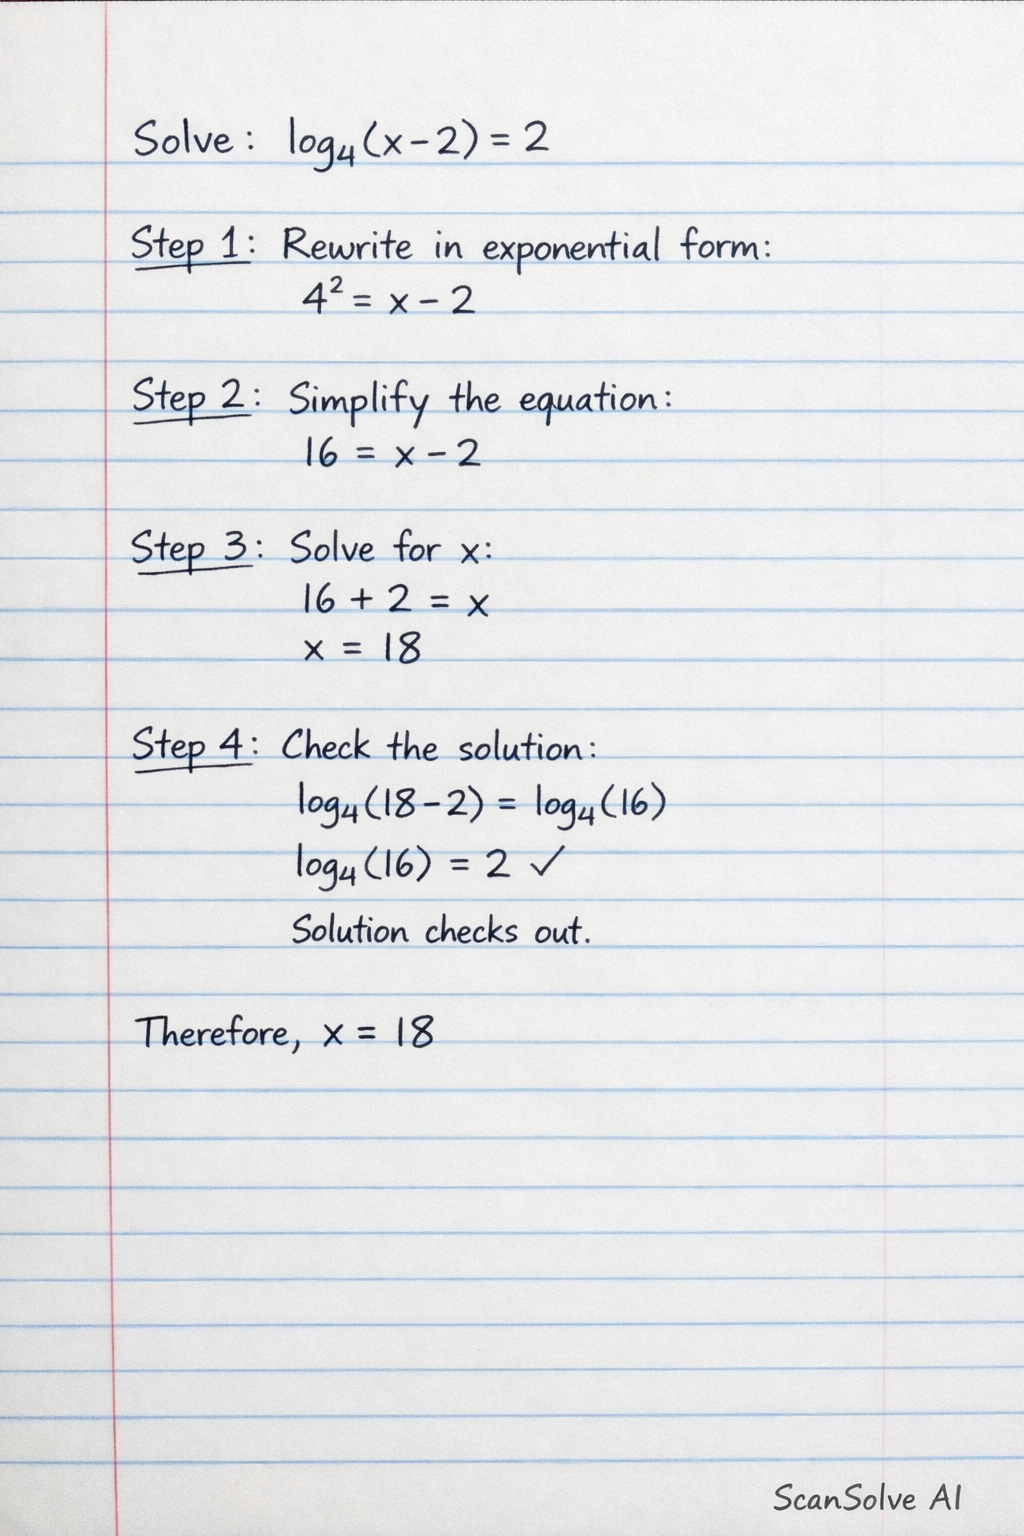 Solve: log₄(x-2) = 2
Step 1: Rewrite in exponential form:
4² = x - 2
Step 2: Simplify the equation:
16 = x - 2
Step 3: Solve for x:
16 + 2 = x
x = 18
Step 4: Check the solution:
log₄(18-2) = log₄(16)
log₄(16) = 2 ✓
Solution checks out.
Therefore, x = 18
ScanSolve AI